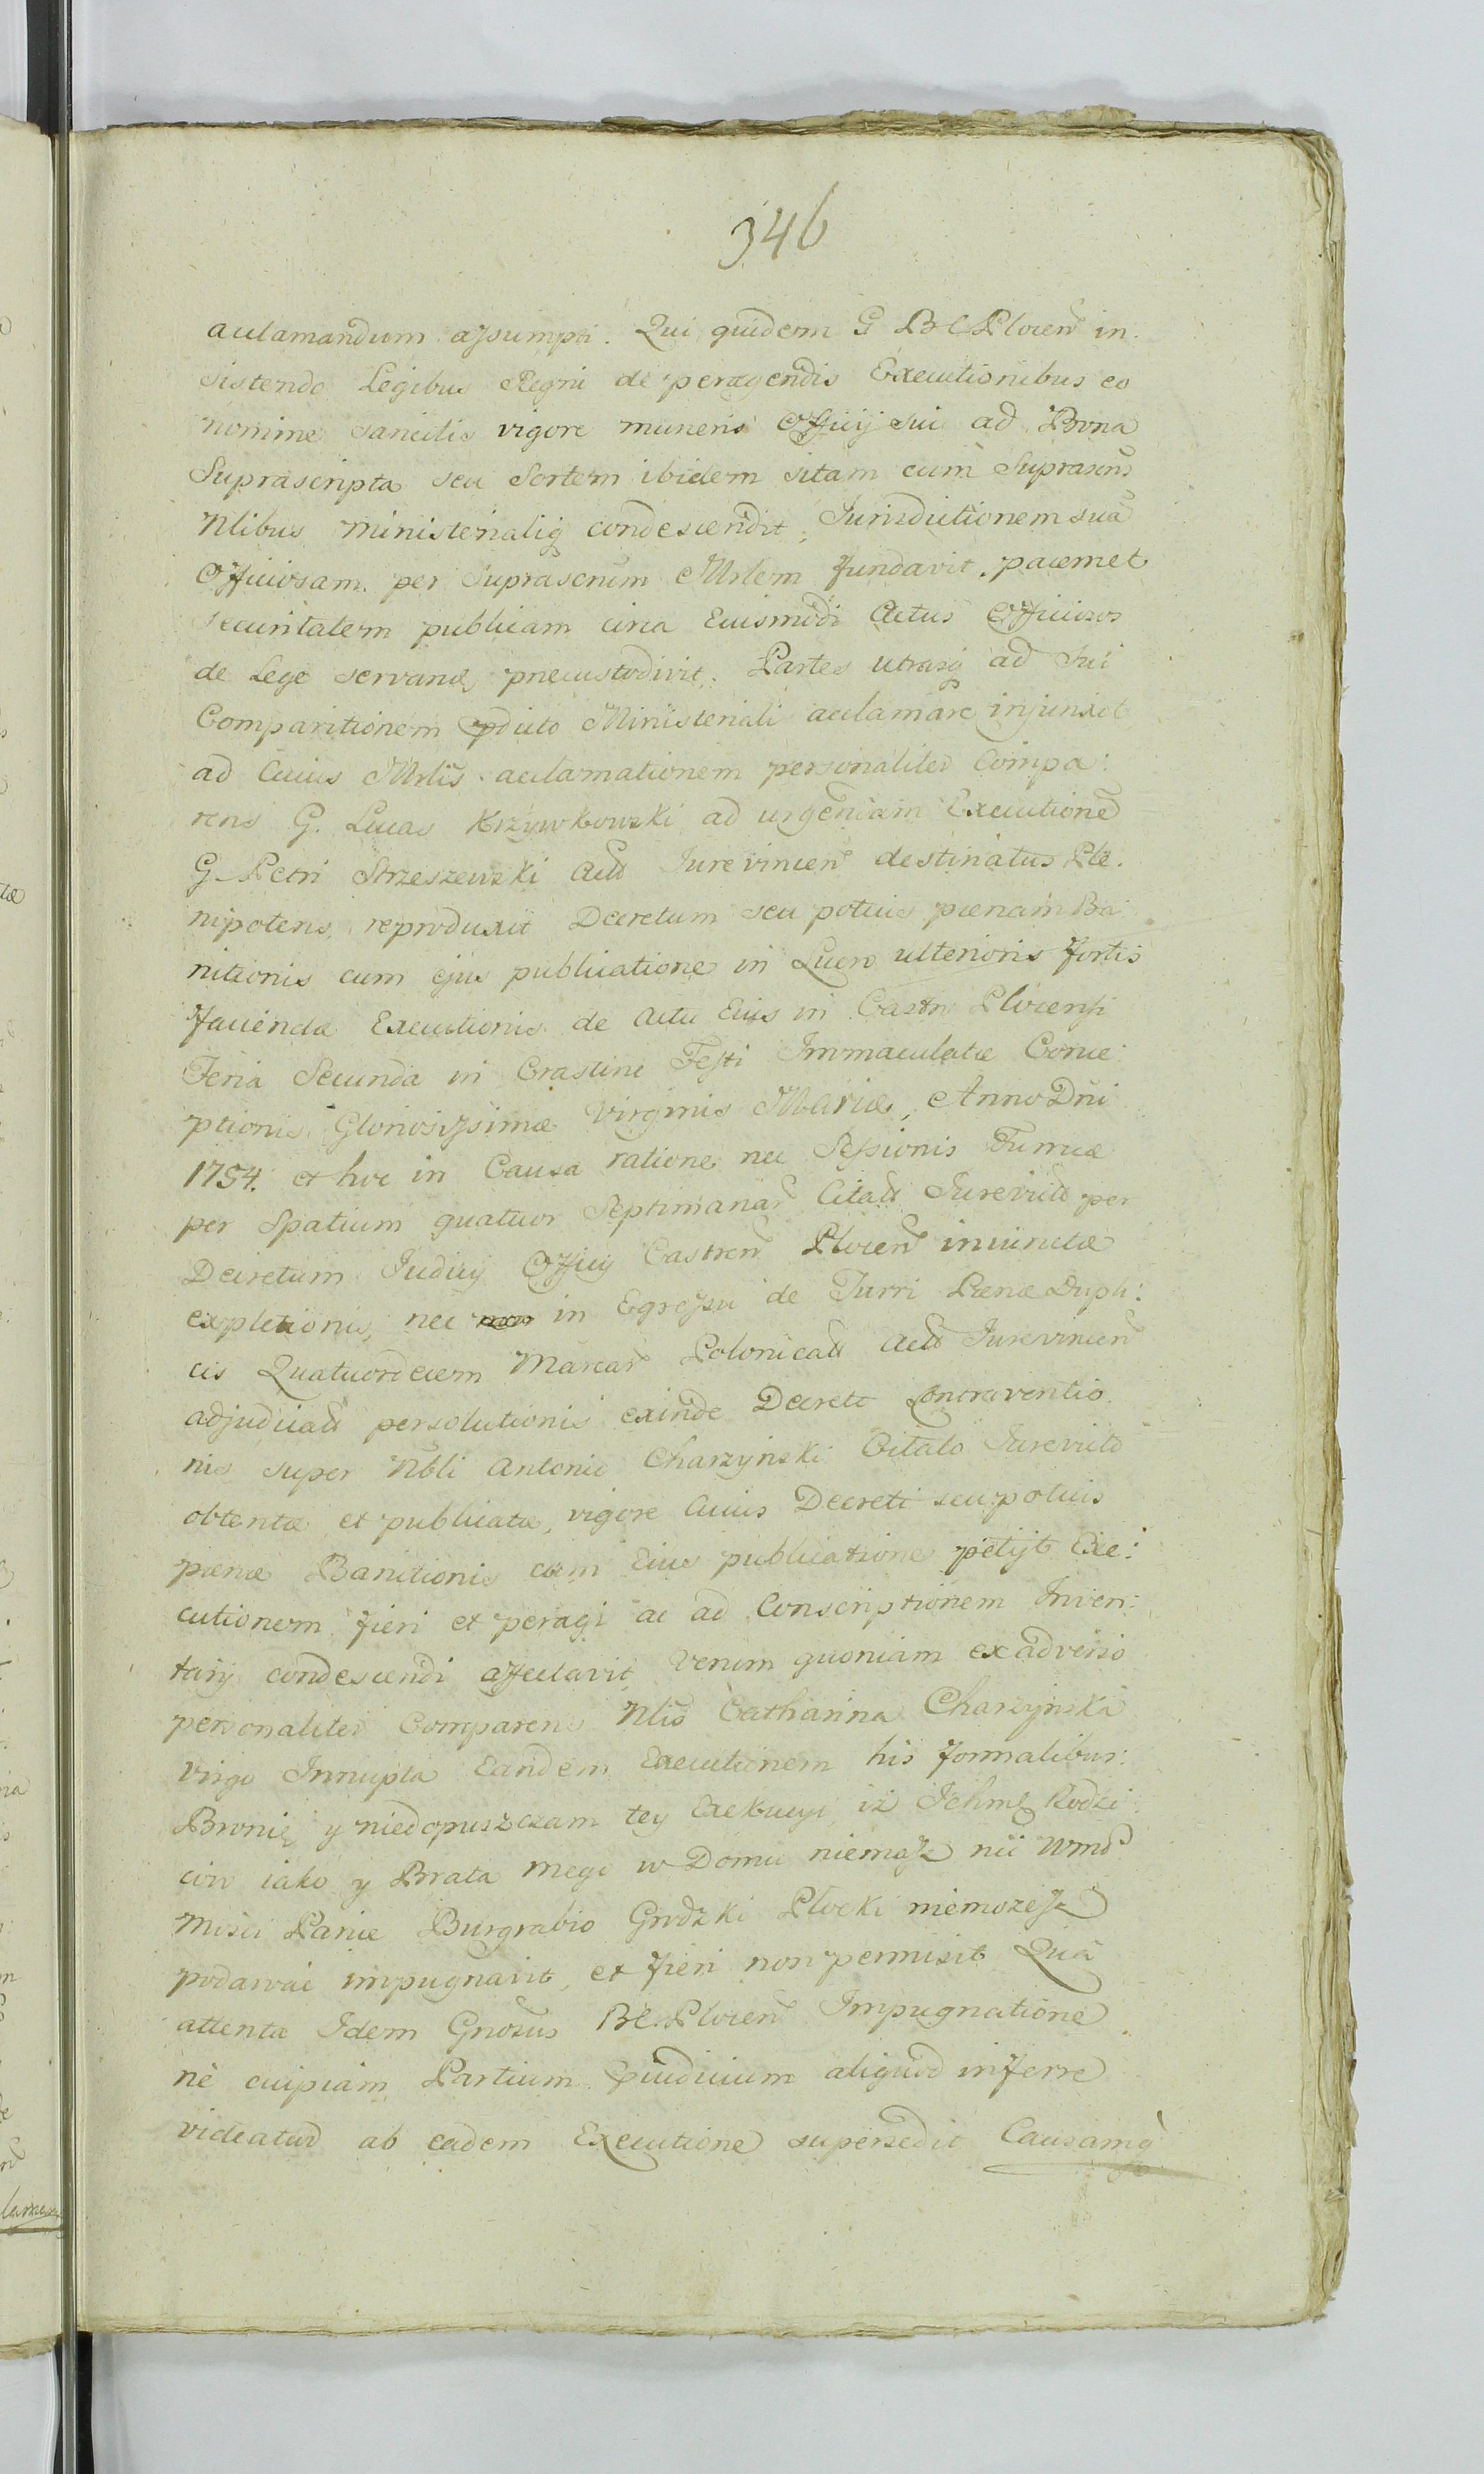 346
acclamandum assumpti. Qui quidem G BC Plocen in:
sistendo Legibus Regni de peragendis Executionibus eo
nomine sancitis vigore muneris Officij sui ad Bona
Suprascripta seu Sortem ibidem sitam cum Suprascris
Nlibus Ministerialiq condescendit, Jurisdictionem suã
Officiosam per Suprascrium Mrlem fundavit, pacem et
securitatem publicam circa Eiusmodi Actus Officiosos
de Lege servand precustodivit. Partes utrasq ad sui
Comparitionem pdicto Ministeriali acclamare injunxit
ad Cuius Mrlis acclamationem personaliter Compa:
rens G. Lucas Krzywkowski ad urgendam Executionem
G Petri Strzeszewski Act Jurevincen destinatus Ple:
nipotens reproduxit Decretum seu potius pænam Ba:
nitionis cum ejus publicatione in Lucro ulterioris fortis
faciendæ Executionis de actu Eius in Castro Plocensi
Feria Secunda in Crastino Festi Immaculatæ Conce:
ptionis Gloriosissimæ Virginis Mariæ, Anno Dni
1754. et hoc in Causa ratione nec Sessionis Turris
per Spatium quatuor Septimanar Citat Jurevict per
Decretum Judicij Officij Castren Plocen iniunctæ
expletionis, nec non in Egressu de Turri Pænæ Dupli:
cis Quatuordecem Marcar Polonicat Act Jurevincen
adjudicat persolutionis exinde Decreto Contraventio:
nis super Nbli Antonio Charzyński Citato Jurevicto
obtentæ et publicatæ, vigore Cuius Decreti seu potius
pænæ Banitionis cum Eius publicatione petijt Exe:
cutionem fieri et peragi ac ad Conscriptionem Inven:
tarij condescendi affectavit, Verum quoniam ex adverso
personaliter Comparens Nlis Catharina Charzyńska
Virgo Innupta Eandem Executionem his formalibus:
Bronię y niedopuszczam tey Exekucyi iż Ichmć Rodzi:
ców iako y Brata mego w Domu niemasz nic Wmć
Mości Panie Burgrabio Grodzki Płocki niemożesz
podawać impugnavit, et fieri non permisit Quã
attenta Idem Gnosus BC Plocen Impugnatione
nè cuipiam Partium pjudicium aliquod inferre
videatur ab eadem Executione supersedit Causamq